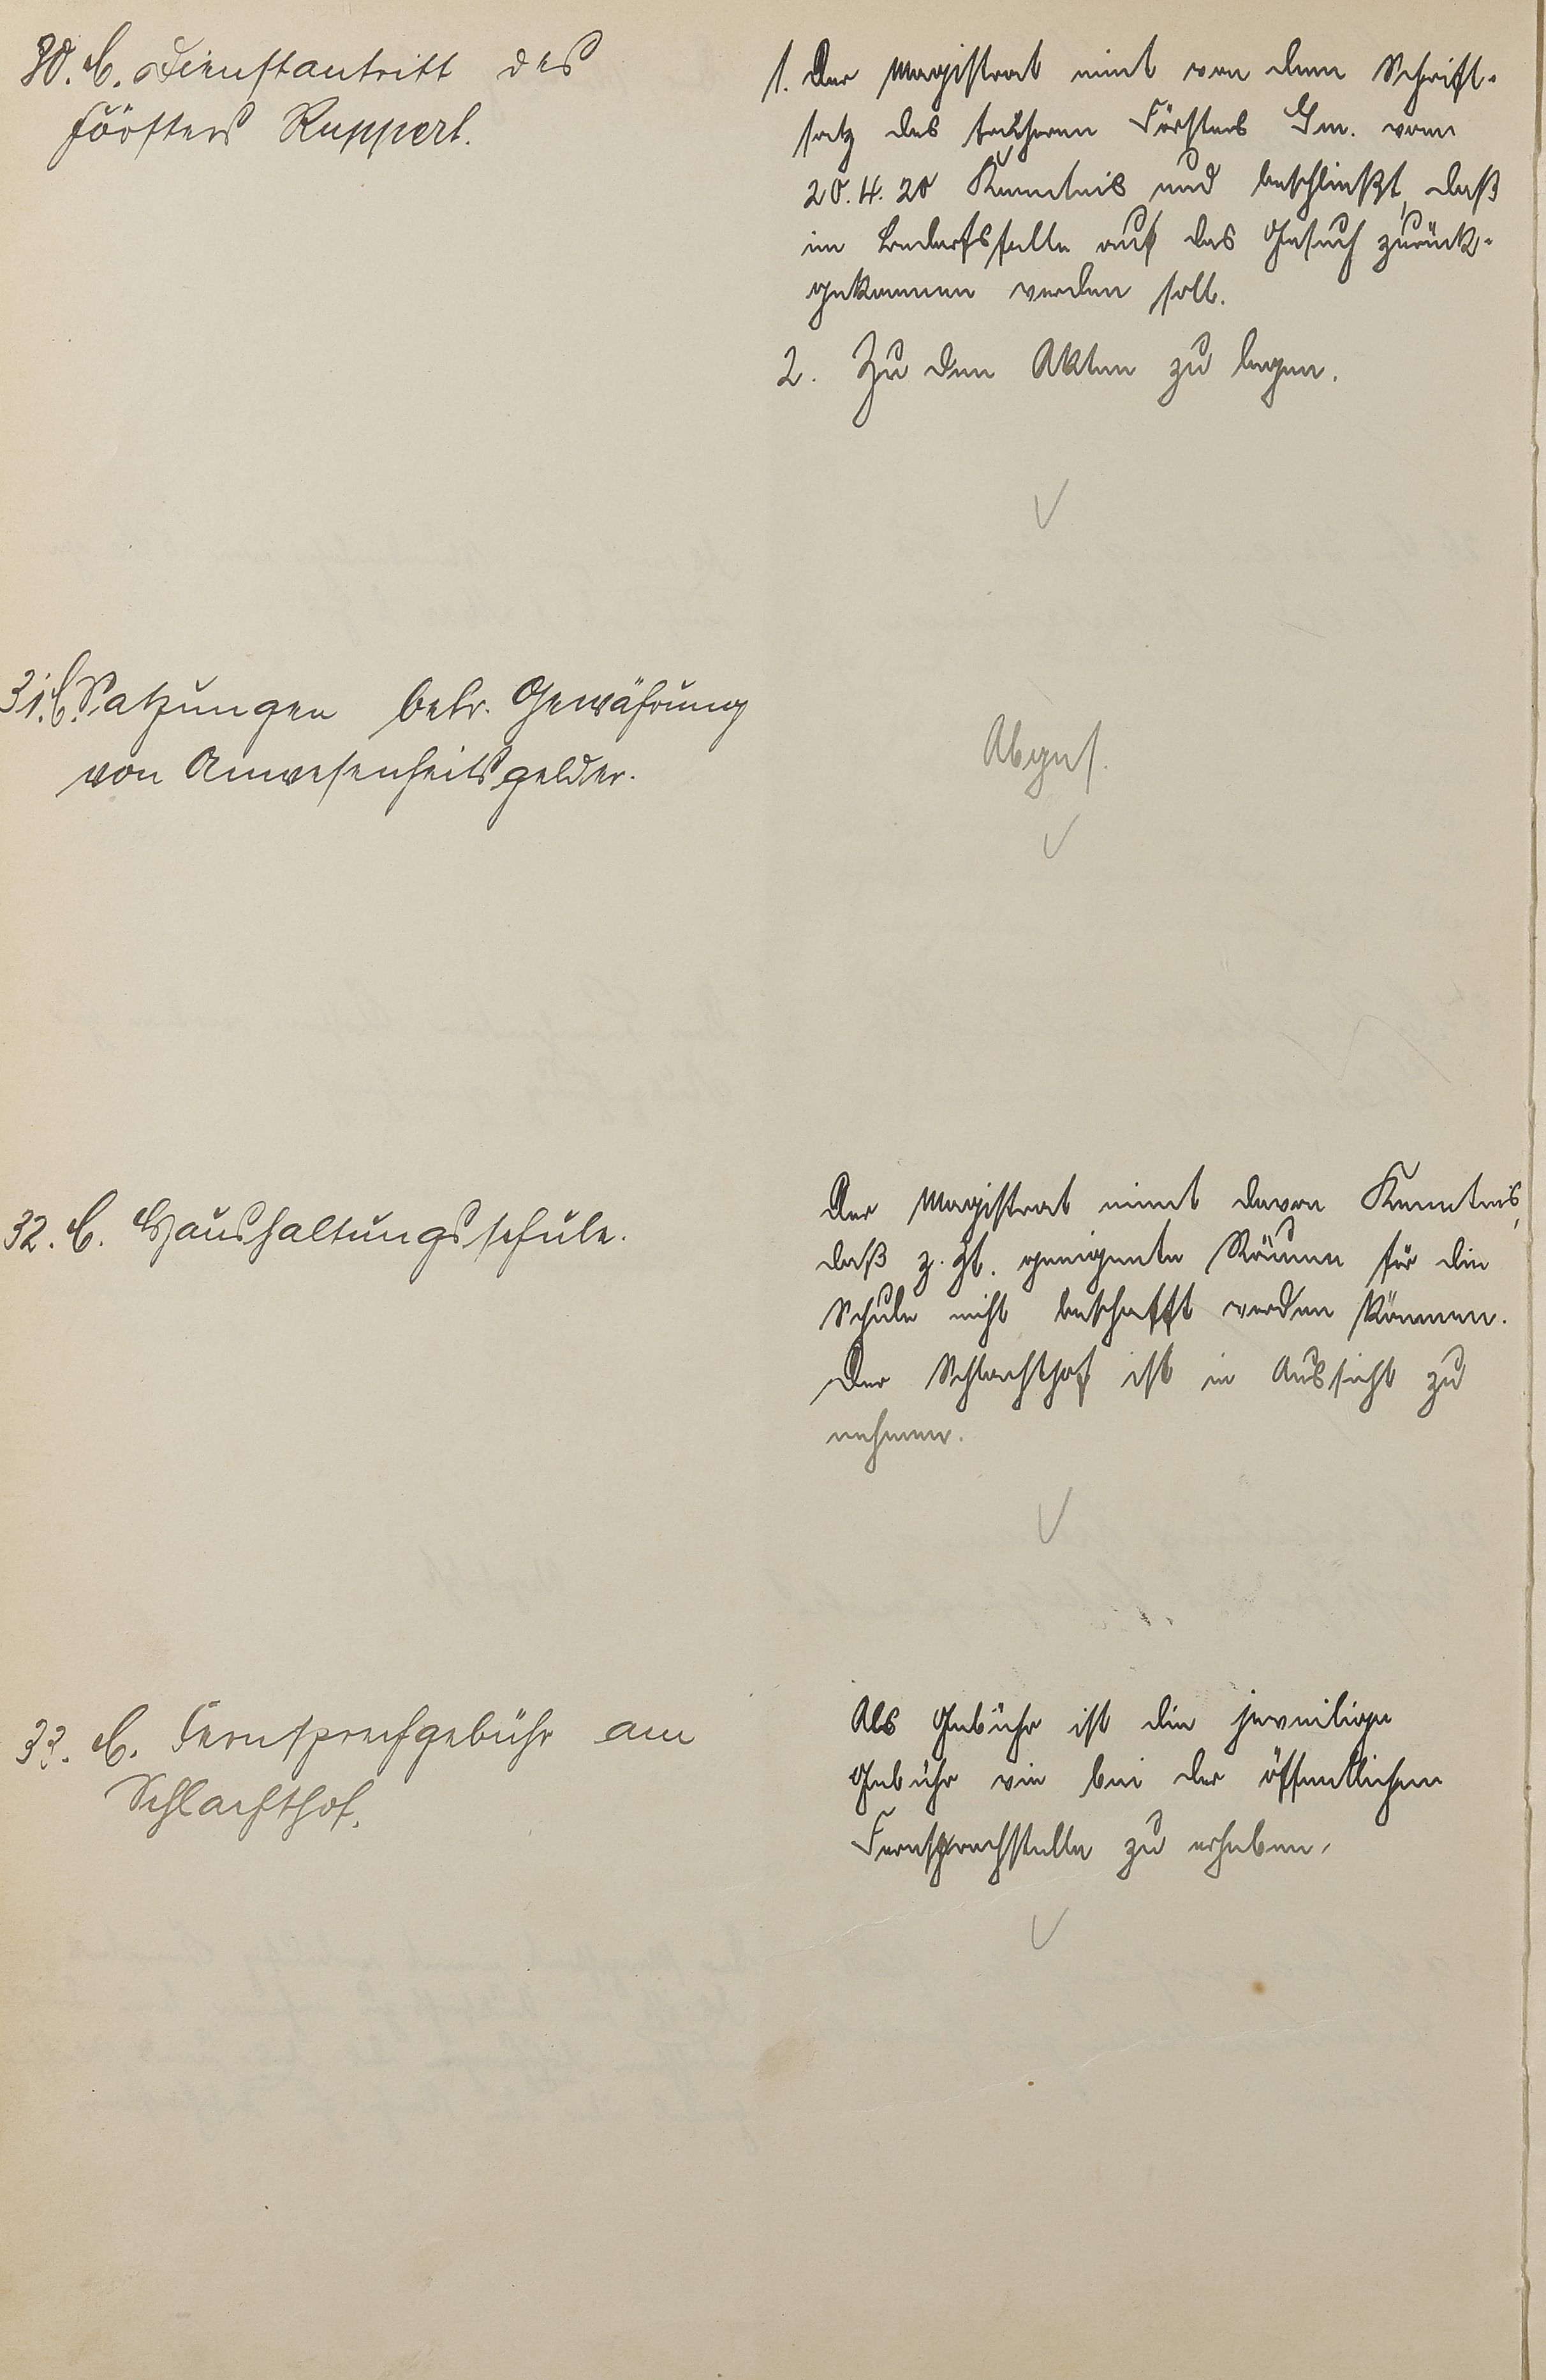 30. C. Dienstantritt des
Försters Ruppert.
1. Der Magistrat nimt von dem Schrift-
satz des früheren Försters vom
20.4.20 Kenntnis und beschließt, daß
im Bedarfsfalle auf das Gesuch zurück-
gekommen werden soll.
2. Zu den Akten zu legen.
31. C. Satzungen betr. Gewährung
von Anwesenheitsgelder.
Abges.
32. C. Haushaltungsschule.
Der Magistrat nimt davon Kenntnis,
daß z. Zt. geeignete Räume für die
Schule nicht beschafft werden können.
Der Schlachthof ist in Aussicht zu
nehmen.
33. C. Fernsprechgebühr am
Schlachthof.
Als Gebühr ist die jeweilige
Gebühr wie bei der öffentlichen
Fernsprechstelle zu erheben.